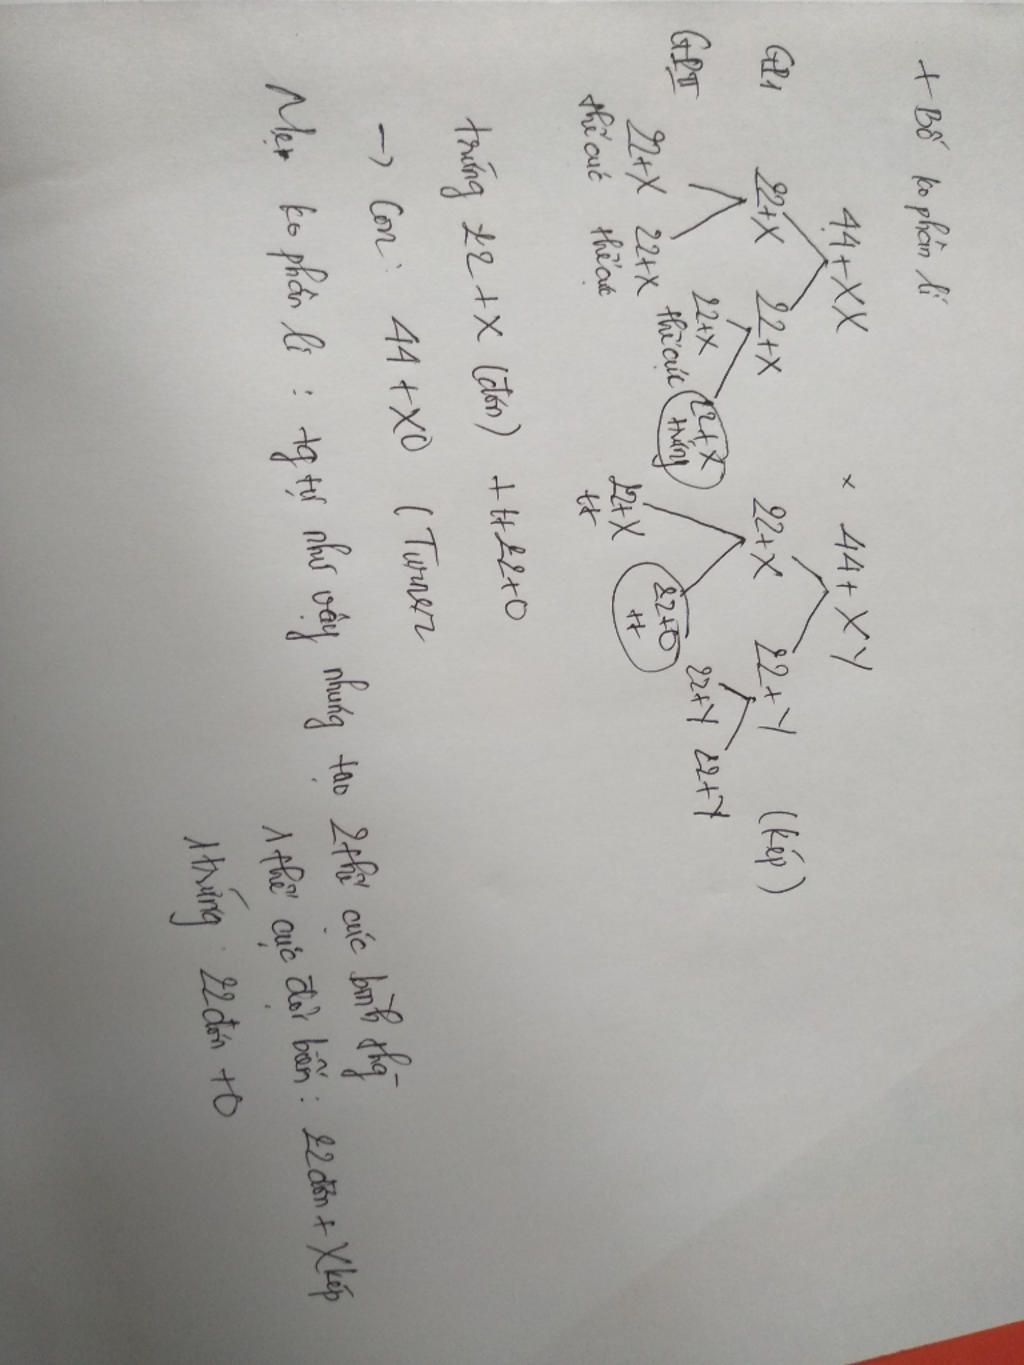 + Bố ko phân li
44+XX × 44+XY
GP1 22+X 22+X 22+X 22+Y (kép)
GPII 22+X 22+X 22+X 22+X 22+X 22+0 22+Y 22+Y
thể cực thể cực thể cực trứng tt tt
trứng 22+X (đơn) + tt 22+0
→ Con: 44+XO (Turner
Mẹ ko phân li : tg tự như vậy nhưng tạo 2 thể cực bình thg
1 thể cực đột biến : 22 đơn + X kép
1 trứng : 22 đơn + 0